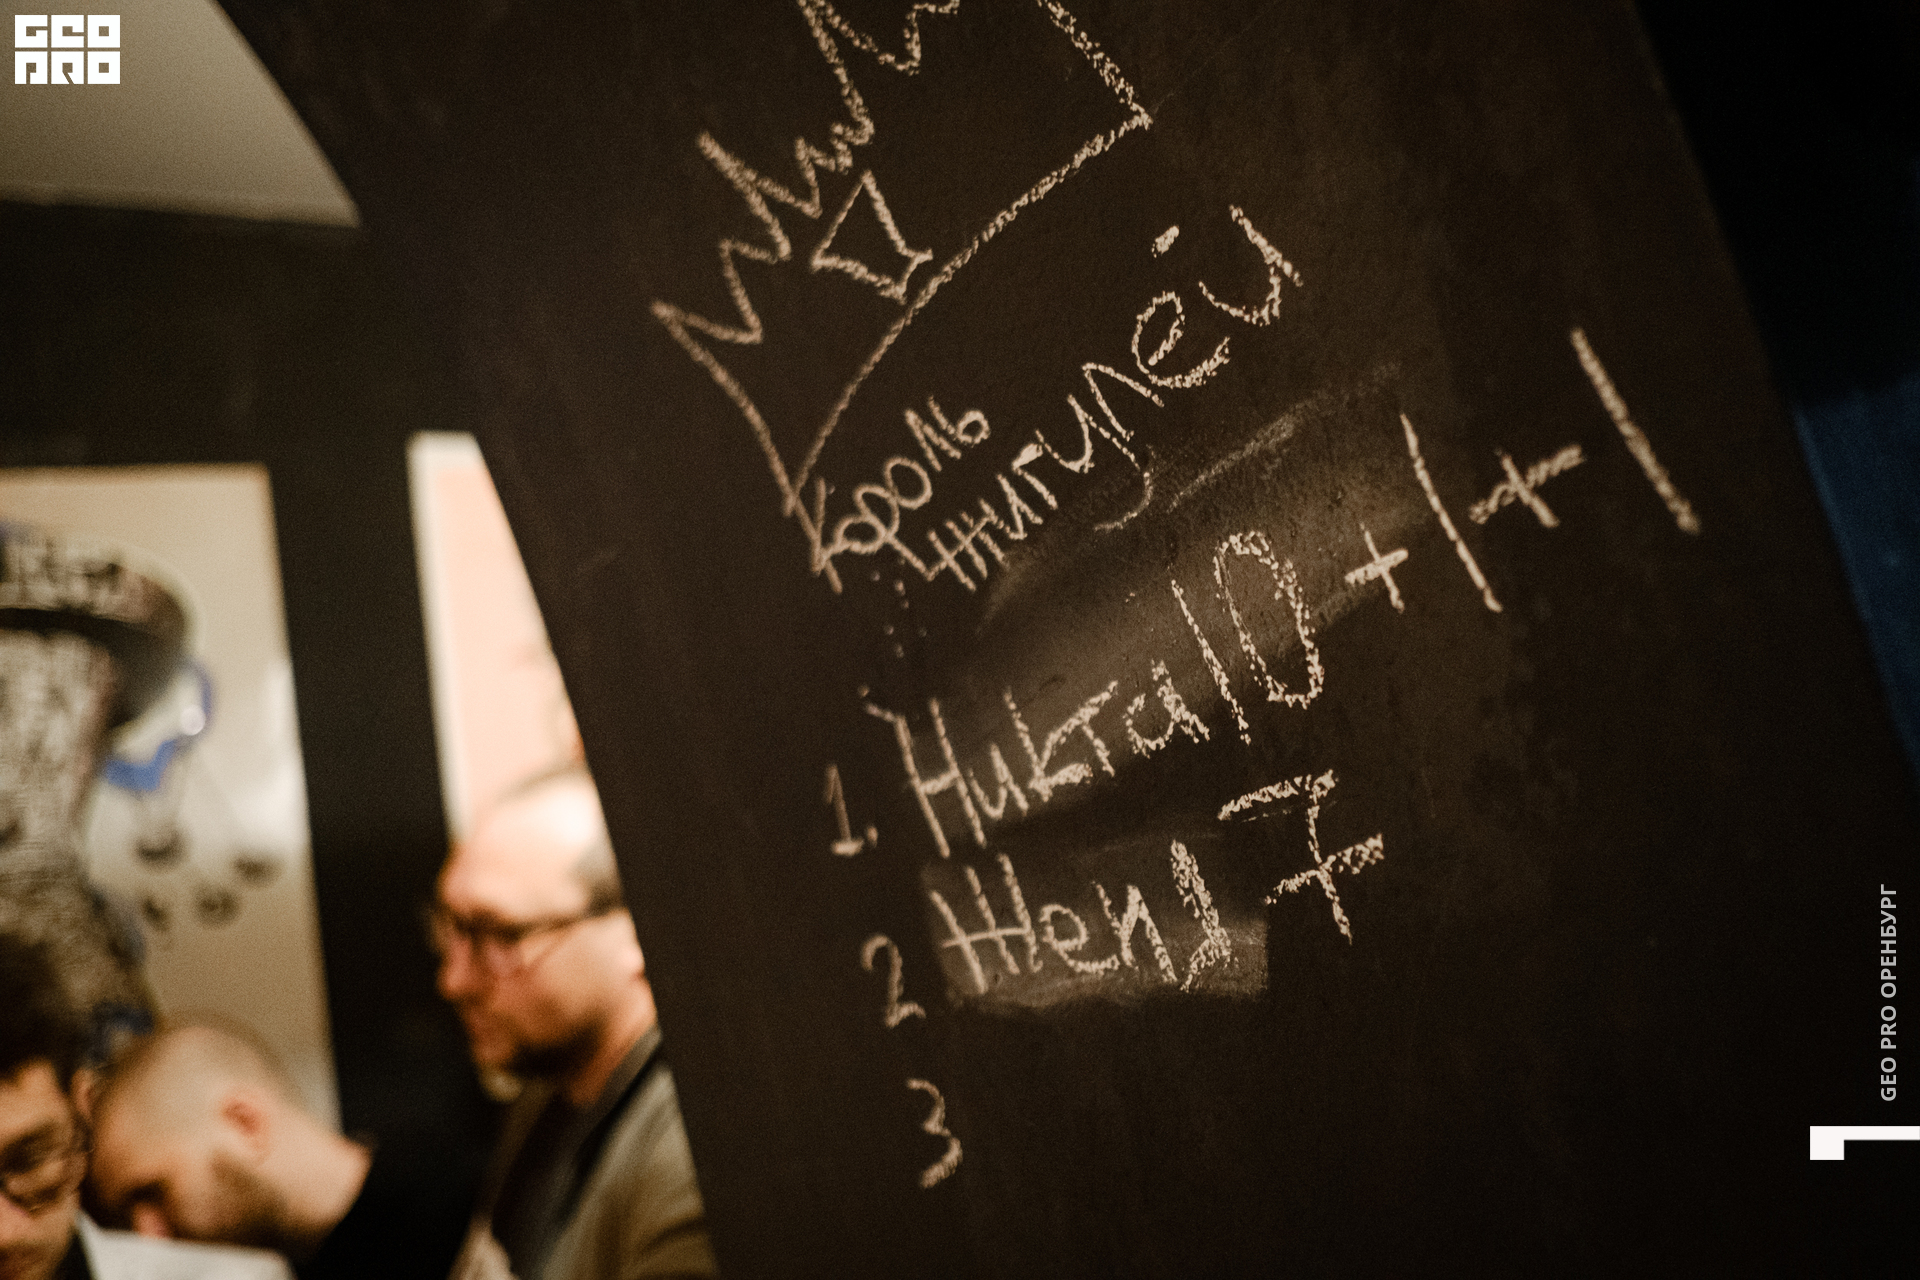 GEO
PRO
Король
жигулей
1. Никта 10 + 1 + 1
2 Женя 7
3
GEO PRO ОРЕНБУРГ